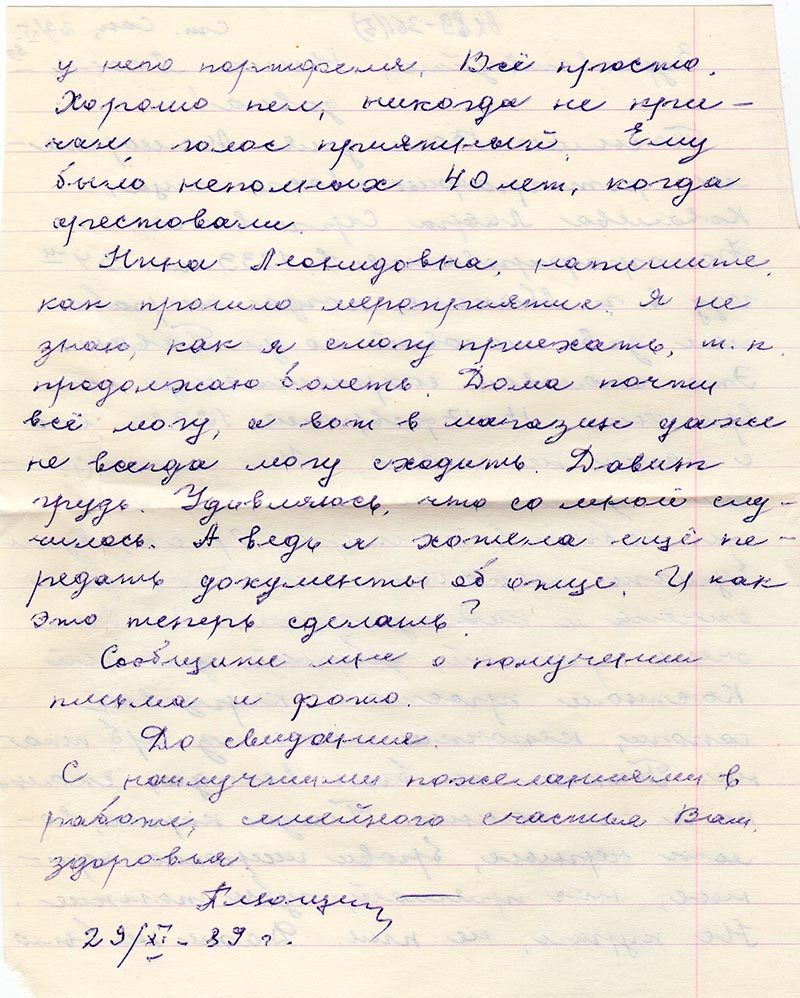 у него портфеля. Всё просто.
Хорошо пел, никогда не кри-
чал голос приятный. Ему
было неполных 40 лет, когда
арестовали.
Нина Леонидовна, напишите,
как прошло мероприятие. Я не
знаю, как я смогу приехать, т. к.
продолжаю болеть. Дома почти
всё могу, а вот в магазин даже
не всегда могу сходить. Давит
грудь. Удивляюсь, что со мной слу-
чилось. А ведь я хотела ещё пе-
редать документы об отце. И как
это теперь сделать?
Сообщите мне о получении
письма и фото.
До свидания.
С наилучшими пожеланиями в
работе, семейного счастья Вам,
здоровья.
29/XI-89 г.